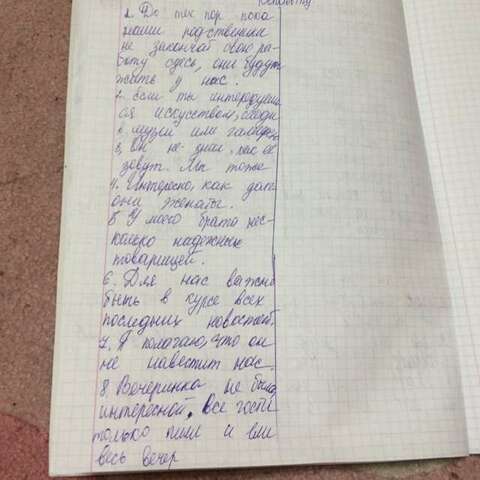 1. До тех пор пока
наши родственники
не закончат свою ра-
боту здесь, они будут
жить у нас.
2. Если ты интересуеш
ся искусством, сходи
в музеи или галерею
3, Он не знал, как её
зовут. Мы тоже
4. Интересно, как долг
они женаты.
5. У моего брата нес-
колько надежных
товарищей.
6. Для нас важно
быть в курсе всех
последних новостей.
7. Я полагаю, что он
не навестит нас.
8. Вечеринка не была
интересной. Все гости
только пили и ели
весь вечер